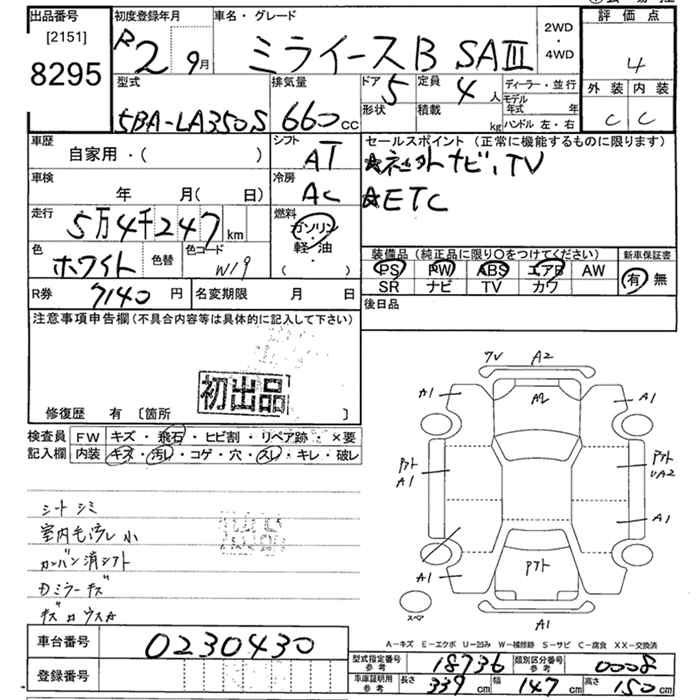 出品番号
[2151]
8295
初度登録年月
R2 9月
車名・グレード
ミライースB SAⅢ
2WD
・
4WD
評価点
4
外装 内装
C C
型式
5BA-LA350S
排気量
660CC
ドア 5
形状
定員 4人
積載 kg
ディーラー・並行
モデル年式 年
ハンドル 左・右
車歴
自家用・( )
シフト
AT
車検
年 月( 日)
冷房
AC
走行
5万4千247km
燃料
ガソリン
軽・油
( )
色
ホワイト
色替
色コード
W19
R券 7140円
名変期限 月 日
セールスポイント(正常に機能するものに限ります)
★社外ナビ、TV
★ETC
装備品(純正品に限り〇をつけてください)
PS PW ABS エアB AW
SR ナビ TV カワ
新車保証書
有 無
後日品
注意事項申告欄(不具合内容等は具体的に記入して下さい)
初出品
修復歴 有 〔箇所 〕
検査員
記入欄
FW キズ・飛石・ヒビ割・リペア跡・×要
内装 キズ・汚レ・コゲ・穴・スレ・キレ・破レ
シート シミ
室内毛汚レ小
カンバン消シアト
Dミラーキズ
車台番号 0230430
登録番号
A2
A1
A2
A1
A1
UA2
A1
A1
A1
スペア
A-キズ E-エクボ U-凹み W-補修跡 S-サビ C-腐食 XX-交換済
型式指定番号 参考 18736
類別区分番号 参考 0008
車庫証明用 参考 長さ 339cm 幅 147cm 高さ 150cm